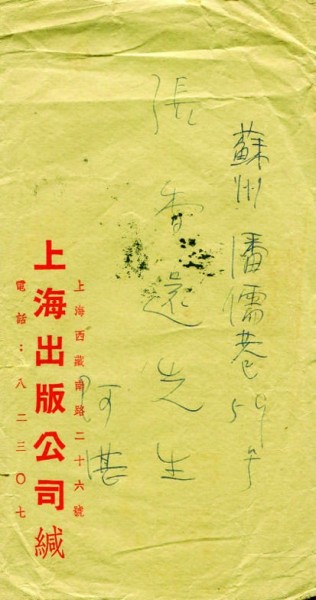 蘇州 潘儒巷
張香還先生
阿湛
上海西藏南路二十六號
上海出版公司緘
電話：八二三〇七